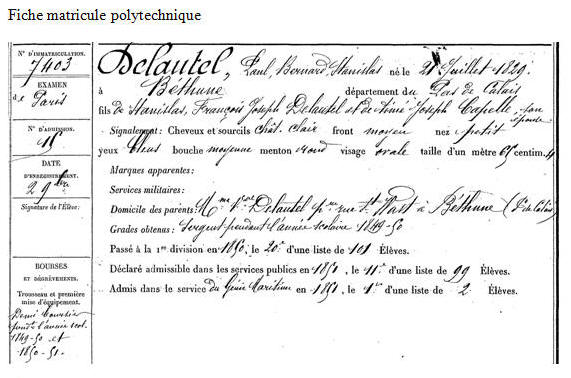 Fiche matricule polytechnique
N° D'IMMATRICULATION.
7403
EXAMEN
de Paris
N° D'ADMISSION.
DATE
D'ENREGISTREMENT.
2 9bre
Signature de l'Élève:
BOURSES
ET DÉGRÈVEMENTS.
Trousseau et première
mise d'équipement.
Demi boursier
pendt l'année scol.
1849-50 et
1850-51.
Delautel, Paul, Bernard, Stanislas né le 21 Juillet 1829.
à Béthune département du Pas de Calais
fils de Stanislas, François Joseph Delautel et de Aimée Joseph Capelle, son épouse
Signalement: Cheveux et sourcils chât. clair front moyen nez petit
yeux bleus bouche moyenne menton rond visage ovale taille d'un mètre 65 centim. 4
Marques apparentes:
Services militaires:
Domicile des parents: Mme Vve Delautel rue St Wast à Béthune (Pas de Calais)
Grades obtenus: Sergent pendant l'année scolaire 1849-50
Passé à la 1re division en 1850, le 20e d'une liste de 101 Élèves.
Déclaré admissible dans les services publics en 1851, le 11e d'une liste de 99 Élèves.
Admis dans le service du Génie Maritime en 1851, le 1er d'une liste de 2 Élèves.